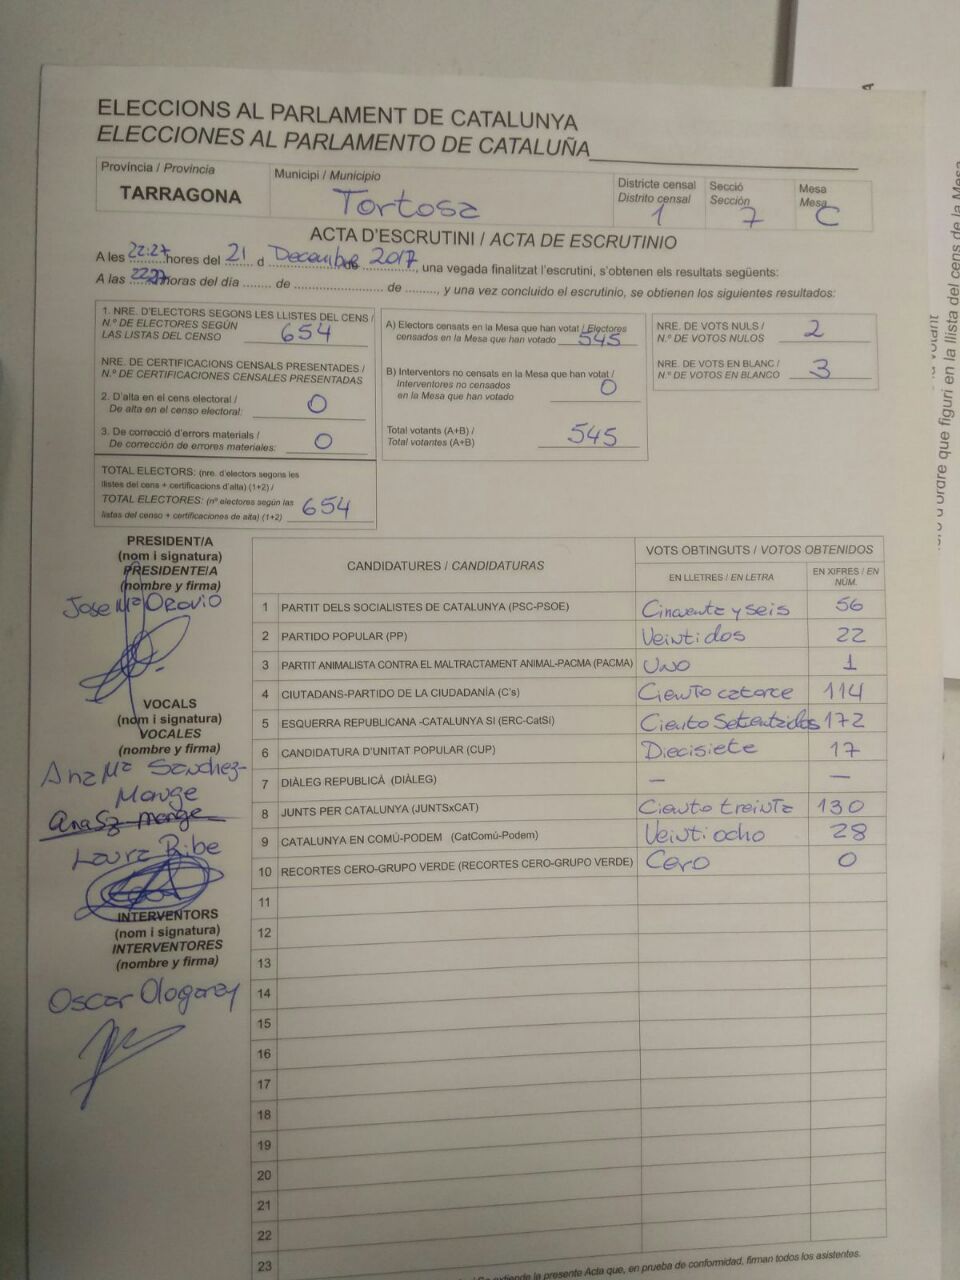 ELECCIONS AL PARLAMENT DE CATALUNYA
ELECCIONES AL PARLAMENTO DE CATALUÑA
Província / Provincia
TARRAGONA
Municipi / Municipio
Tortosa
Districte censal
Distrito censal
1
Secció
Sección
7
Mesa
Mesa
C
ACTA D'ESCRUTINI / ACTA DE ESCRUTINIO
A les 22:27 hores del 21 d Decembre 2017, una vegada finalitzat l'escrutini, s'obtenen els resultats següents:
A las 22:27 horas del día ........ de ........................ de ........, y una vez concluido el escrutinio, se obtienen los siguientes resultados:
1. NRE. D'ELECTORS SEGONS LES LLISTES DEL CENS /
N.º DE ELECTORES SEGÚN
LAS LISTAS DEL CENSO 654
NRE. DE CERTIFICACIONS CENSALS PRESENTADES /
N.º DE CERTIFICACIONES CENSALES PRESENTADAS
2. D'alta en el cens electoral /
De alta en el censo electoral: 0
3. De correcció d'errors materials /
De corrección de errores materiales: 0
TOTAL ELECTORS: (nre. d'electors segons les
llistes del cens + certificacions d'alta) (1+2) /
TOTAL ELECTORES: (nº electores según las
listas del censo + certificaciones de alta) (1+2) 654
A) Electors censats en la Mesa que han votat / Electores
censados en la Mesa que han votado 545
B) Interventors no censats en la Mesa que han votat /
Interventores no censados
en la Mesa que han votado 0
Total votants (A+B) /
Total votantes (A+B) 545
NRE. DE VOTS NULS /
N.º DE VOTOS NULOS 2
NRE. DE VOTS EN BLANC /
N.º DE VOTOS EN BLANCO 3
PRESIDENT/A
(nom i signatura)
PRESIDENTE/A
(nombre y firma)
Jose Mª Orovio
VOCALS
(nom i signatura)
VOCALES
(nombre y firma)
Ana Mª Sanchez-
Monge
Laura Ribe
INTERVENTORS
(nom i signatura)
INTERVENTORES
(nombre y firma)
Oscar
CANDIDATURES / CANDIDATURAS
VOTS OBTINGUTS / VOTOS OBTENIDOS
EN LLETRES / EN LETRA
EN XIFRES / EN
NÚM.
1 PARTIT DELS SOCIALISTES DE CATALUNYA (PSC-PSOE) Cincuenta y seis 56
2 PARTIDO POPULAR (PP) Veintidos 22
3 PARTIT ANIMALISTA CONTRA EL MALTRACTAMENT ANIMAL-PACMA (PACMA) UNO 1
4 CIUTADANS-PARTIDO DE LA CIUDADANÍA (C's) Ciento catorce 114
5 ESQUERRA REPUBLICANA -CATALUNYA SÍ (ERC-CatSí) Ciento Setentaidos 172
6 CANDIDATURA D'UNITAT POPULAR (CUP) Diecisiete 17
7 DIÀLEG REPUBLICÀ (DIÀLEG) — —
8 JUNTS PER CATALUNYA (JUNTSxCAT) Ciento treinta 130
9 CATALUNYA EN COMÚ-PODEM (CatComú-Podem) Veintiocho 28
10 RECORTES CERO-GRUPO VERDE (RECORTES CERO-GRUPO VERDE) Cero 0
11
12
13
14
15
16
17
18
19
20
21
22
23
la presente Acta que, en prueba de conformidad, firman todos los asistentes.
ordre que figuri en la llista del cens de la Mesa